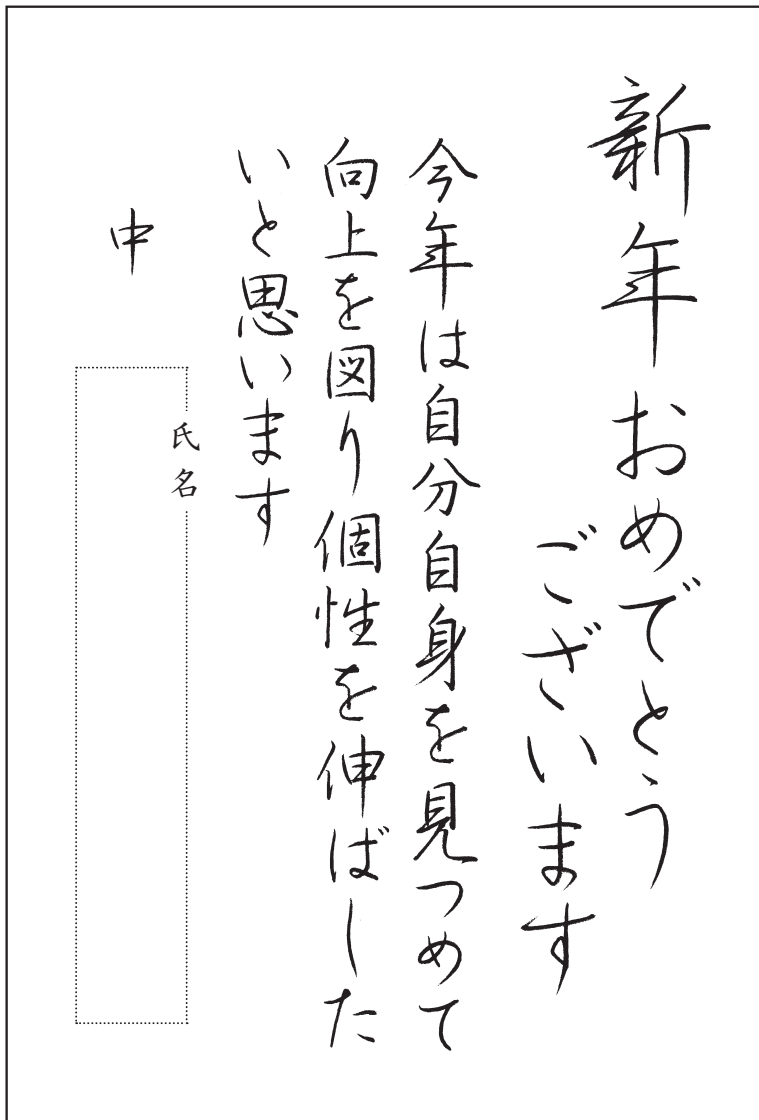 新年おめでとう
ございます
今年は自分自身を見つめて
向上を図り個性を伸ばした
いと思います
中
氏名